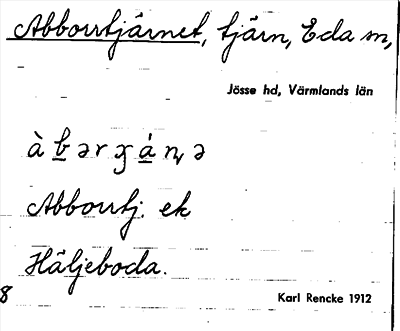 Abborrtjärnet, tjärn, Eda sn,
Jösse hd, Värmlands län
Abborrtj. ek
Häljeboda.
8 Karl Rencke 1912